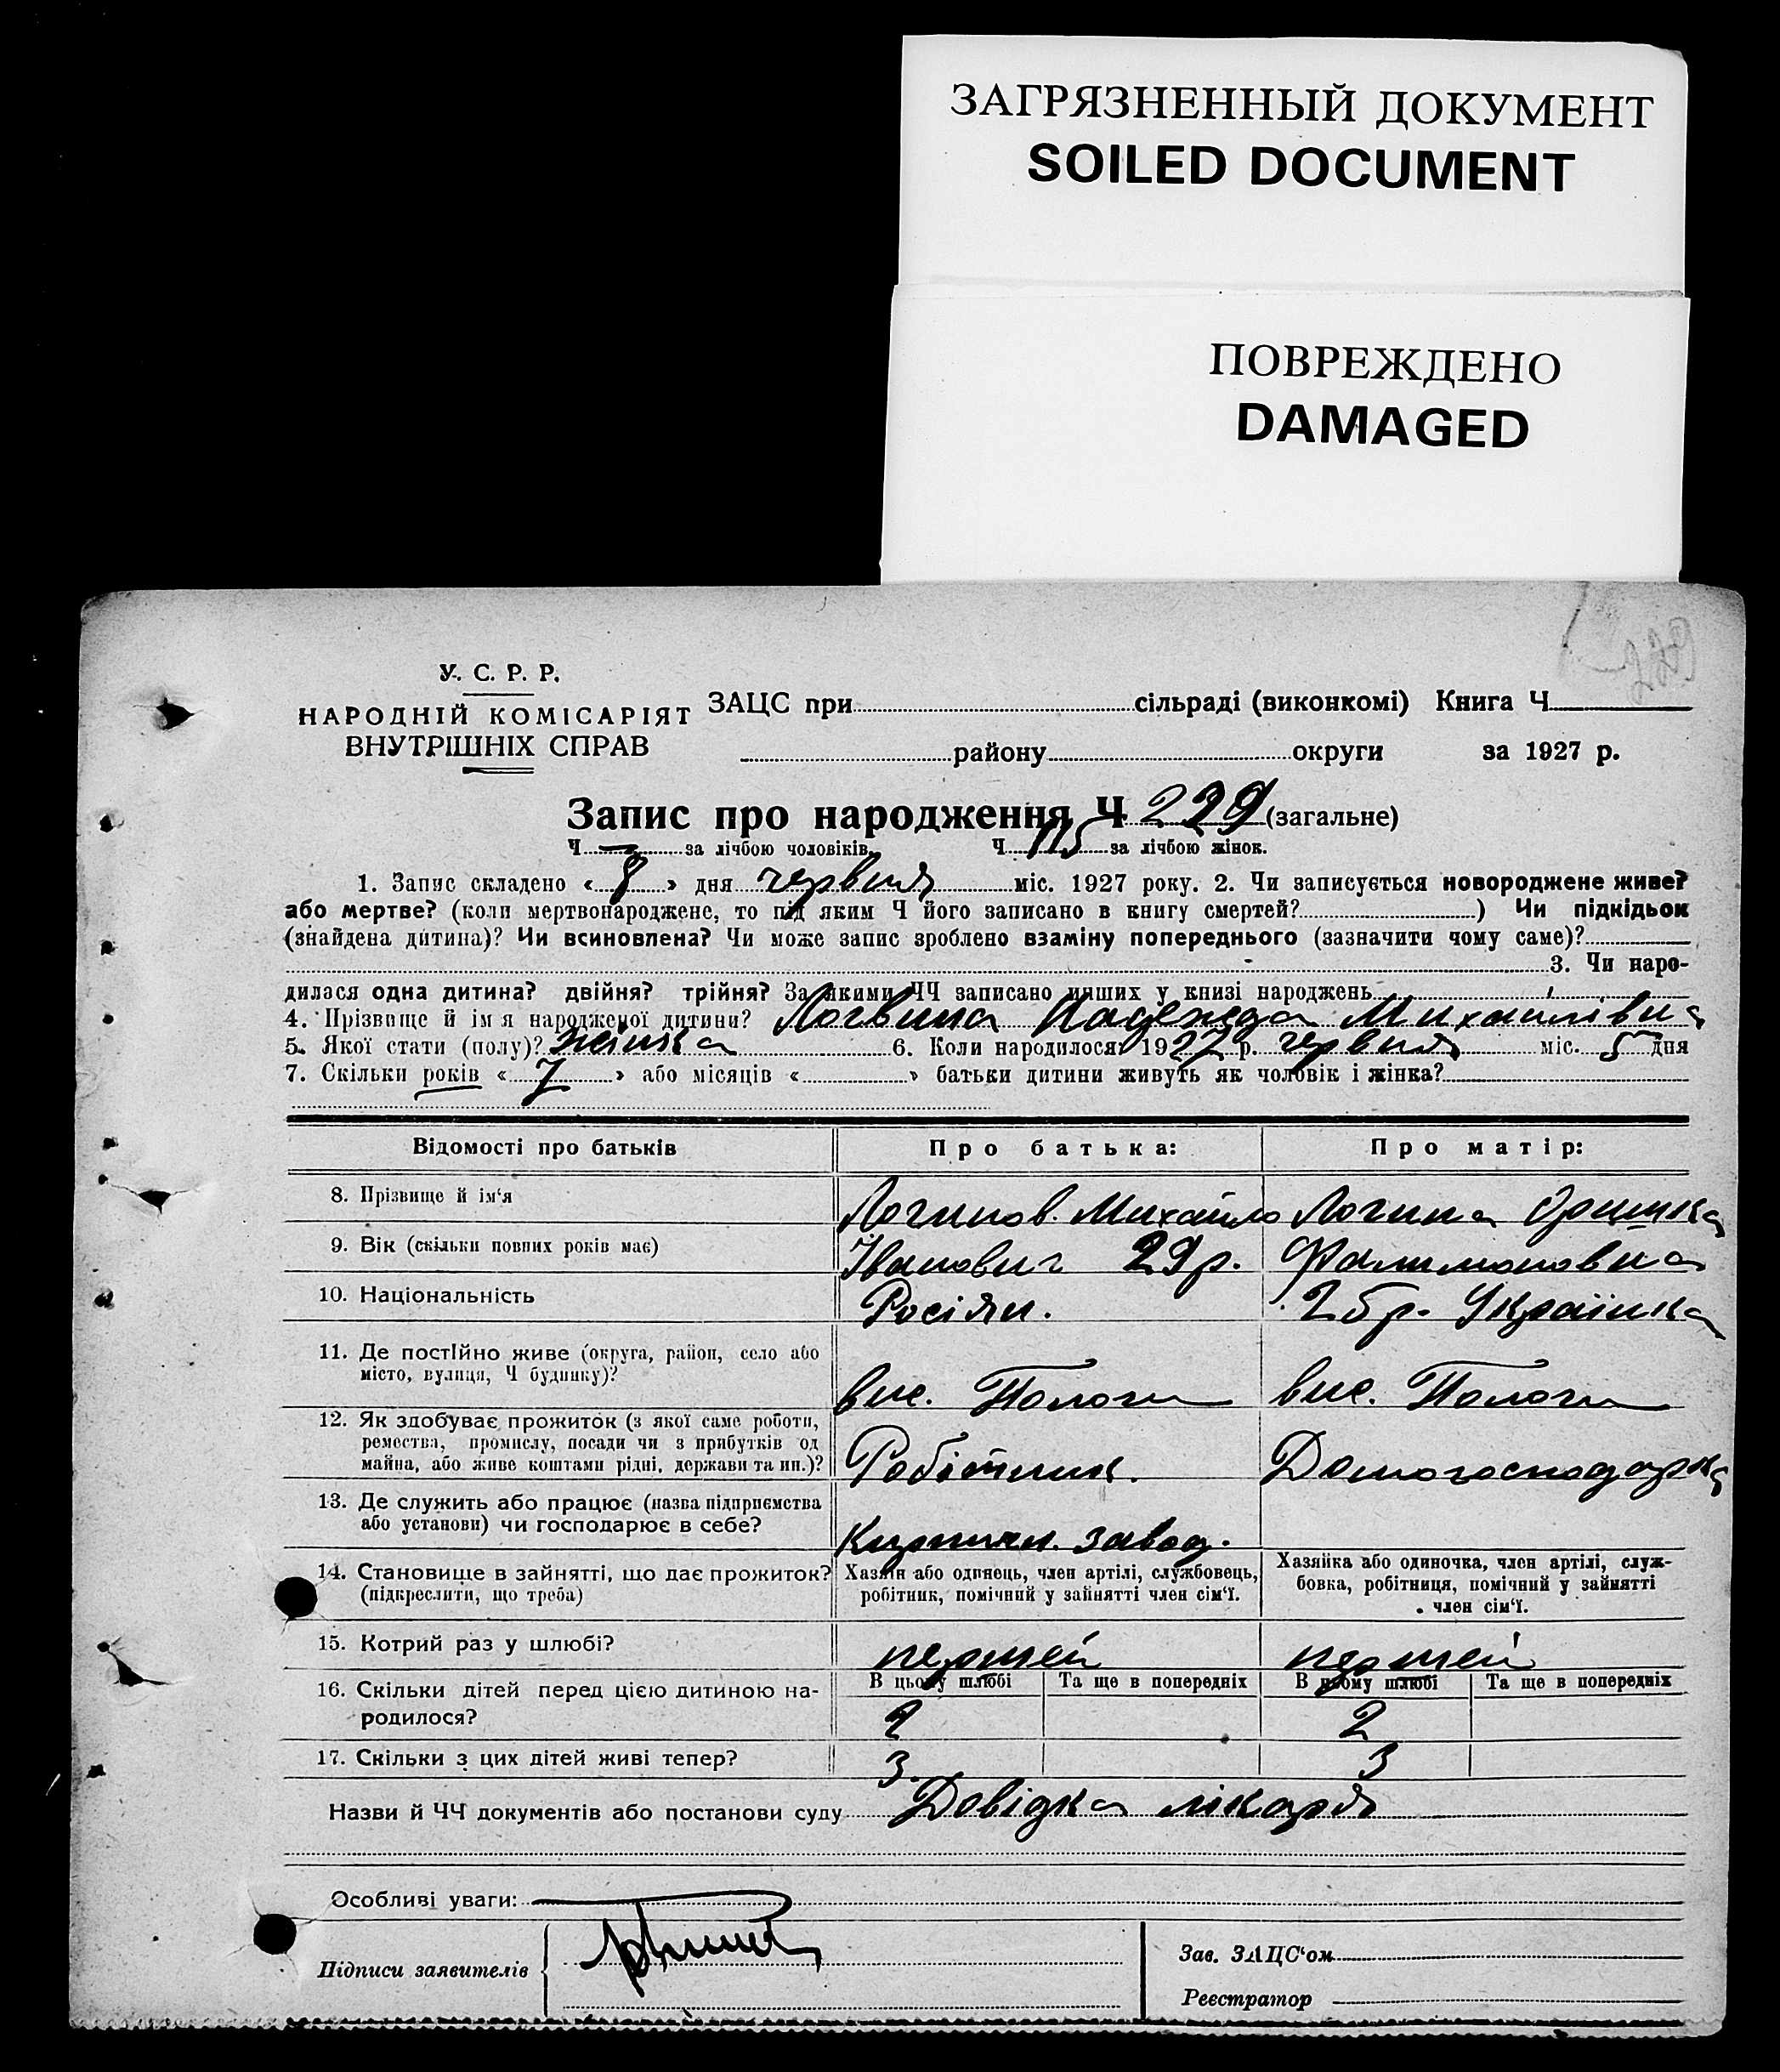 ЗАГРЯЗНЕННЫЙ ДОКУМЕНТ
SOILED DOCUMENT
ПОВРЕЖДЕНО
DAMAGED
229
У. С. Р. Р.
НАРОДНІЙ КОМІСАРІЯТ
ВНУТРІШНІХ СПРАВ
ЗАЦС при сільраді (виконкомі) Книга Ч
району округи за 1927 р.
Запис про народження Ч 229 (загальне)
Ч — за лічбою чоловіків. Ч 115 за лічбою жінок.
1. Запис складено « 8 » дня червня міс. 1927 року. 2. Чи записується новороджене живе?
або мертве? (коли мертвонароджене, то під яким Ч його записано в книгу смертей? ) Чи підкідьок
(знайдена дитина)? Чи всиновлена? Чи може запис зроблено взаміну попереднього (зазначити чому саме)?
3. Чи наро-
дилася одна дитина? двійня? трійня? За якими ЧЧ записано инших у книзі народжень
4. Прізвище й ім я народженої дитини? Логвина Надежда Михайлівна
5. Якої стати (полу)? жінка 6. Коли народилося: 1927 р. червня міс. 5 дня
7. Скільки років « 7 » або місяців « » батьки дитини живуть як чоловік і жінка?
Відомості про батьків Про батька: Про матір:
8. Прізвище й ім'я Логинов. Михайло Логина
9. Вік (скільки повних років має) Іванович 29 р. Филимоновна
10. Національність Росіян. 25 р. Українка
11. Де постІйно живе (округа, район, село або
місто, вулиця, Ч будинку)? вис. Пологи вис. Пологи
12. Як здобуває прожиток (з якої саме роботи,
ремества, промислу, посади чи з прибутків од
майна, або живе коштами рідні, держави та ин.)? Робітник. Домогосподарка
13. Де служить або працює (назва підприємства
або установи) чи господарює в себе? Кирпичн. завод.
14. Становище в зайнятті, що дає прожиток?
(підкреслити, що треба)
Хазяїн або одинець, член артілі, службовець,
робітник, помічний у зайнятті член сім'ї.
Хазяйка або одиночка, член артілі, служ-
бовка, робітниця, помічний у зайнятті
член сім'ї.
15. Котрий раз у шлюбі? першей першей
16. Скільки дітей перед цією дитиною на-
родилося?
В цьому шлюбі Та ще в попередніх В цьому шлюбі Та ще в попередніх
2 2
17. Скільки з цих дітей живі тепер? 3. 3
Назви й ЧЧ документів або постанови суду Довідка лікаря
Особливі уваги:
Підписи заявителів
Зав. ЗАЦС'ом
Реєстратор